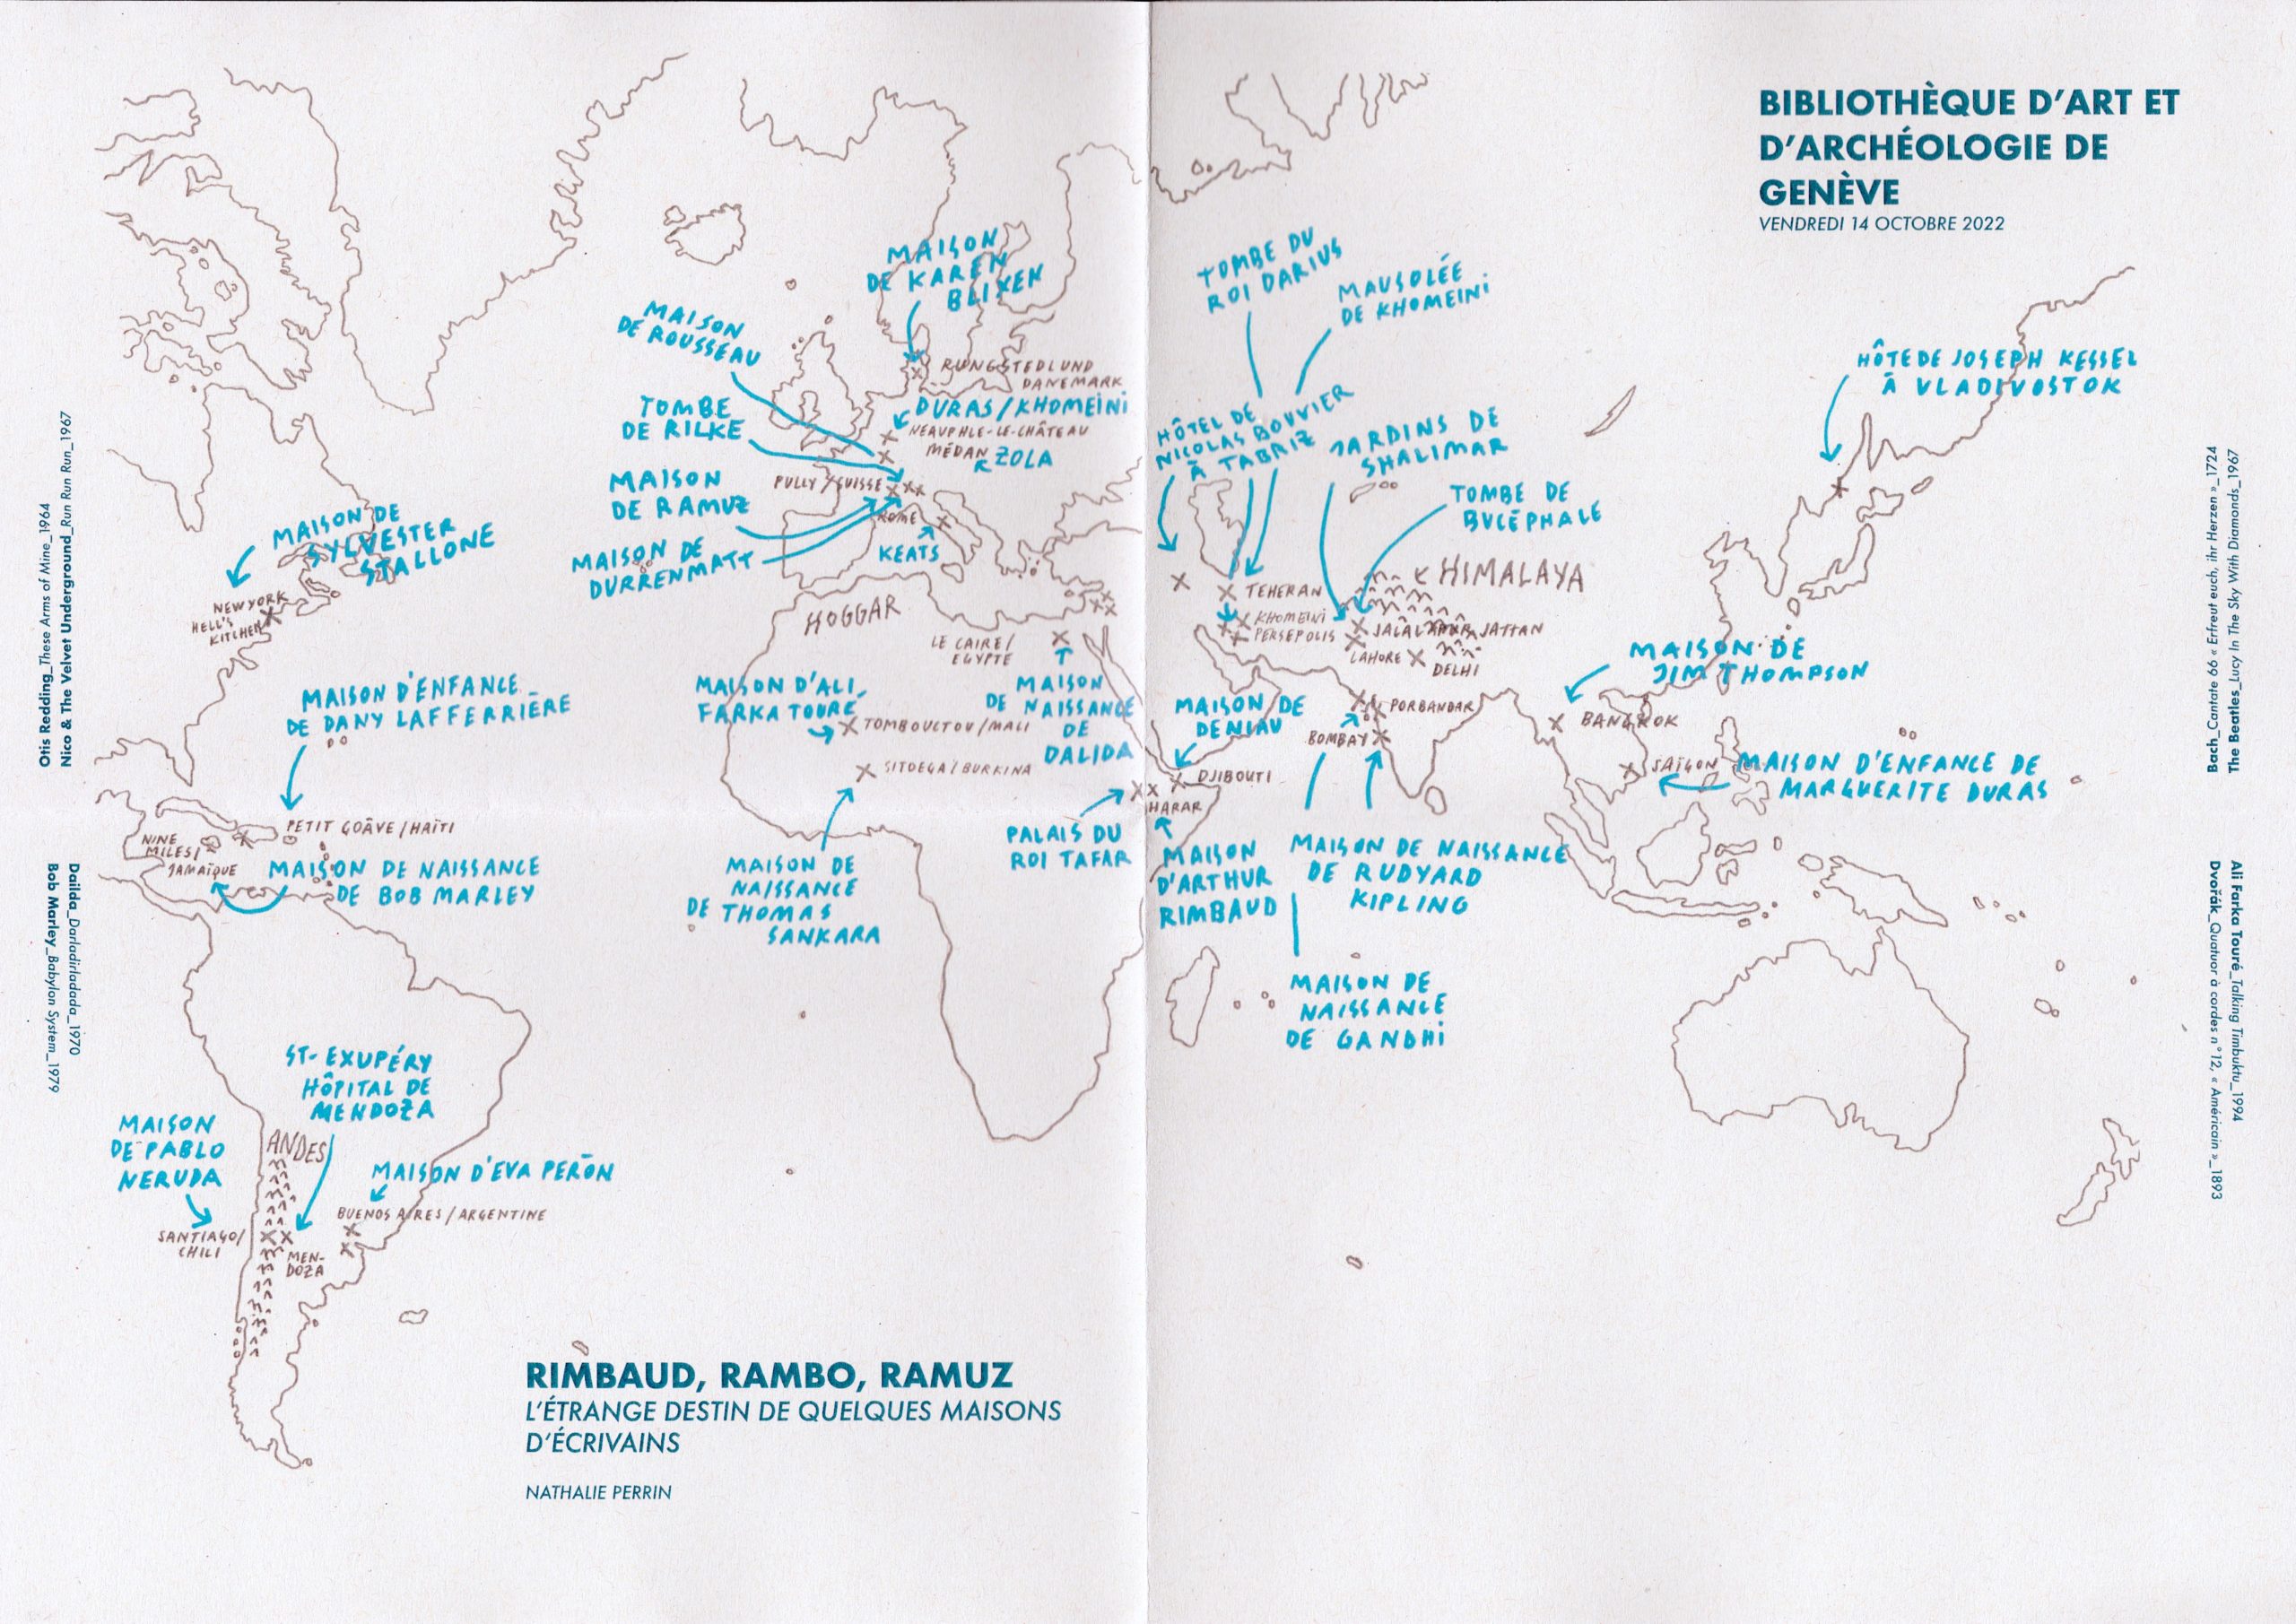 BIBLIOTHÈQUE D'ART ET
D'ARCHÉOLOGIE DE
GENÈVE
VENDREDI 14 OCTOBRE 2022
MAISON
DE KAREN
BLIXEN
RUNGSTEDLUND
DANEMARK
MAISON
DE ROUSSEAU
DURAS/KHOMEINI
NEAUPHLE-LE-CHÂTEAU
MÉDAN
ZOLA
TOMBE
DE RILKE
PULLY/SUISSE
MAISON
DE RAMUZ
MAISON DE
DURRENMATT
ROME
KEATS
TOMBE DU
ROI DARIUS
MAUSOLÉE
DE KHOMEINI
HÔTEL DE
NICOLAS BOUVIER
À TABRIZ
JARDINS DE
SHALIMAR
TOMBE DE
BUCÉPHALE
HÔTE DE JOSEPH KESSEL
À VLADIVOSTOK
HIMALAYA
TEHERAN
KHOMEINI
PERSEPOLIS
JATTAN
LAHORE
DELHI
MAISON DE
SYLVESTER
STALLONE
NEW YORK
HELL'S
KITCHEN
HOGGAR
LE CAIRE/
EGYPTE
MAISON
DE NAISSANCE
DE
DALIDA
MAISON D'ALI
FARKA TOURÉ
TOMBOUCTOU/MALI
SITOEGA/BURKINA
MAISON DE
NAISSANCE
DE THOMAS
SANKARA
MAISON DE
DENIAU
DJIBOUTI
HARAR
PALAIS DU
ROI TAFAR
MAISON
D'ARTHUR
RIMBAUD
PORBANDAR
BOMBAY
MAISON DE NAISSANCE
DE RUDYARD
KIPLING
MAISON DE
NAISSANCE
DE GANDHI
MAISON DE
JIM THOMPSON
BANGKOK
SAÏGON
MAISON D'ENFANCE DE
MARGUERITE DURAS
MAISON D'ENFANCE
DE DANY LAFFERRIÈRE
PETIT GOÂVE/HAÏTI
NINE
MILES/
JAMAÏQUE
MAISON DE NAISSANCE
DE BOB MARLEY
ST-EXUPÉRY
HÔPITAL DE
MENDOZA
MAISON
DE PABLO
NERUDA
ANDES
MAISON D'EVA PERÓN
BUENOS AIRES/ARGENTINE
SANTIAGO/
CHILI
MEN-
DOZA
RIMBAUD, RAMBO, RAMUZ
L'ÉTRANGE DESTIN DE QUELQUES MAISONS
D'ÉCRIVAINS
NATHALIE PERRIN
Otis Redding_These Arms of Mine_1964
Nico & The Velvet Underground_Run Run Run_1967
Dailda_Darladirladada_1970
Bob Marley_Babylon System_1979
Bach_Cantate 66 « Erfreut euch, ihr Herzen »_1724
The Beatles_Lucy In The Sky With Diamonds_1967
Ali Farka Touré_Talking Timbuktu_1994
Dvořák_Quatuor à cordes n°12, « Américain »_1893